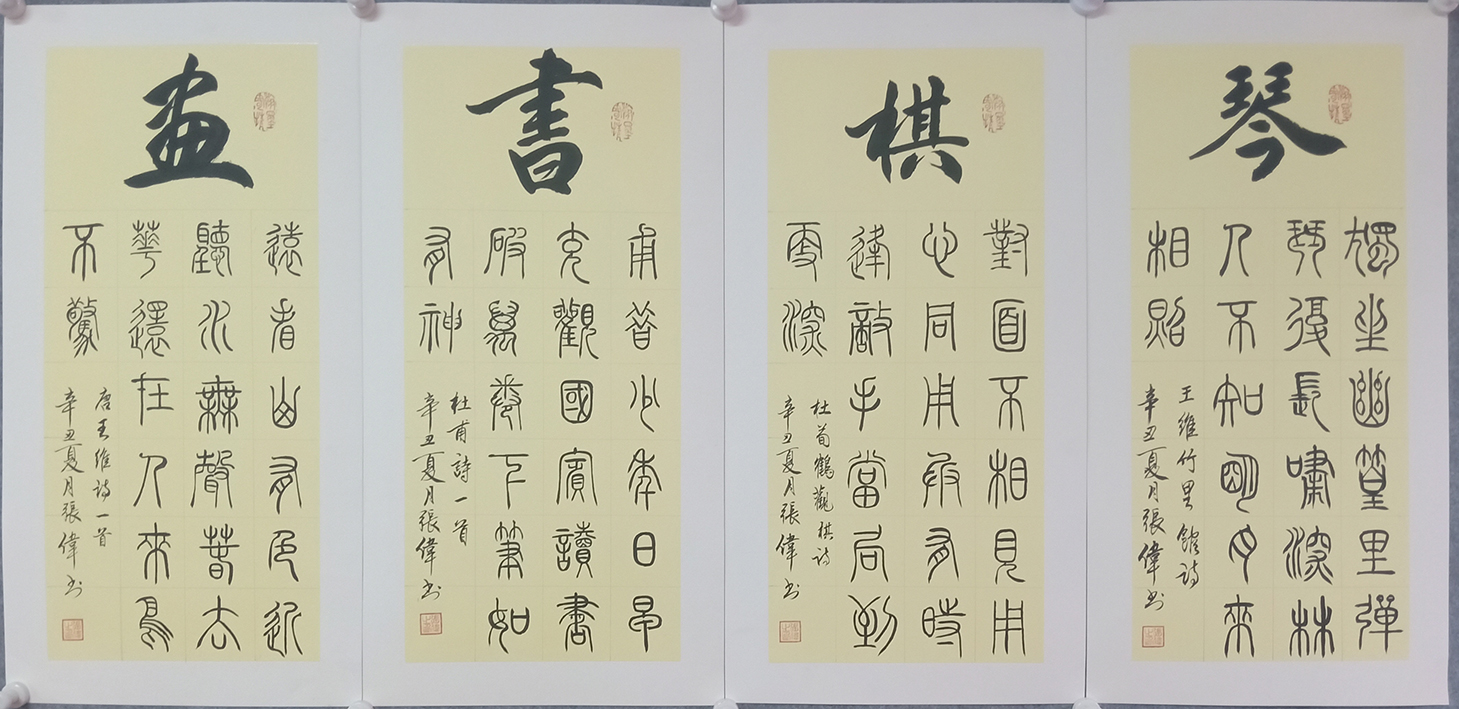 琴
獨坐幽篁里彈
琴復長嘯深林
人不知明月來
相照
王維竹里館詩
辛丑夏月張偉书
棋
對面不相見用
心同用兵有時
逢敵手當局到
更深
杜荀鶴觀棋詩
辛丑夏月張偉书
書
甫昔少年日早
充觀國賓讀書
破萬卷下筆如
有神
杜甫詩一首
辛丑夏月張偉书
画
遠看山有色近
聽水無聲春去
華還在人來鳥
不驚
唐王維詩一首
辛丑夏月張偉书